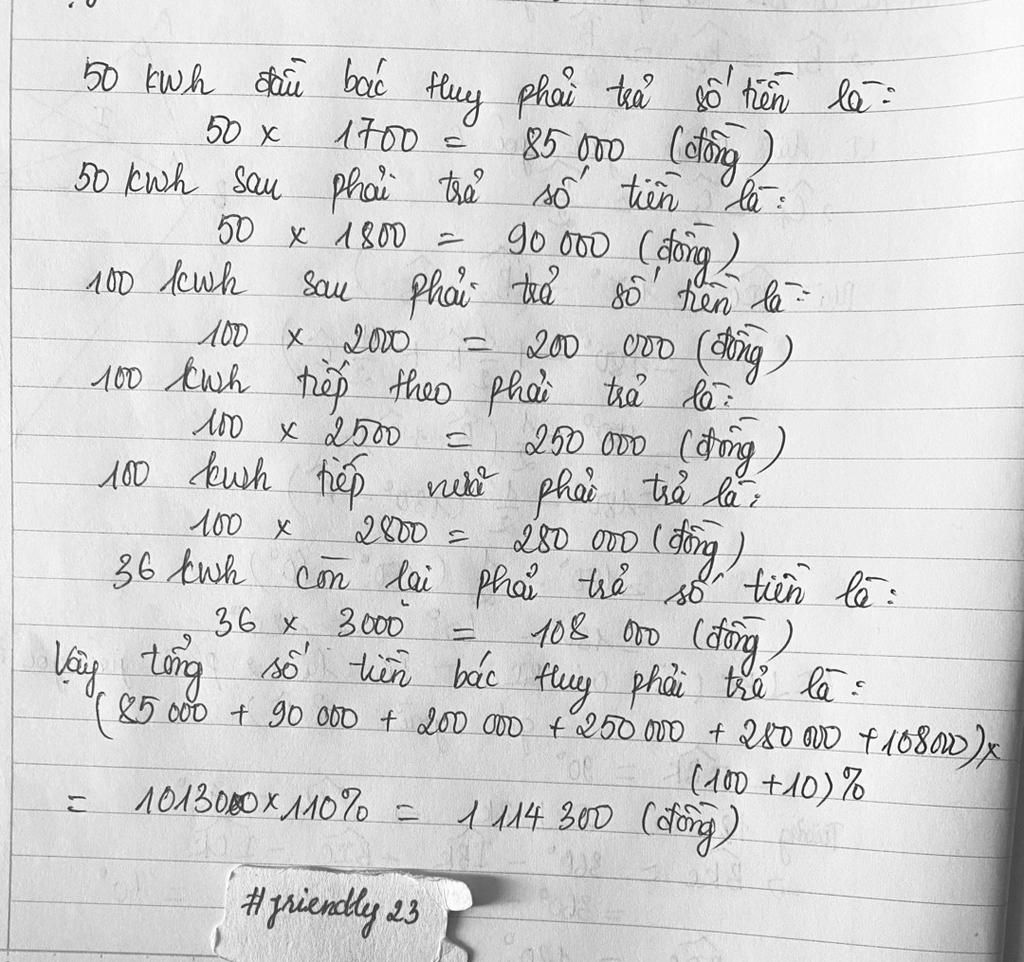 50 kwh đầu bác Huy phải trả số tiền là:
50 x 1700 = 85 000 (đồng)
50 kwh sau phải trả số tiền là:
50 x 1800 = 90 000 (đồng)
100 kwh sau phải trả số tiền là:
100 x 2000 = 200 000 (đồng)
100 kwh tiếp theo phải trả là:
100 x 2500 = 250 000 (đồng)
100 kwh tiếp nữa phải trả là:
100 x 2800 = 280 000 (đồng)
36 kwh còn lại phải trả số tiền là:
36 x 3000 = 108 000 (đồng)
Vậy tổng số tiền bác Huy phải trả là:
(85 000 + 90 000 + 200 000 + 250 000 + 280 000 + 108000) x
(100 + 10)%
= 1013000 x 110% = 1 114 300 (đồng)
#friendly 23